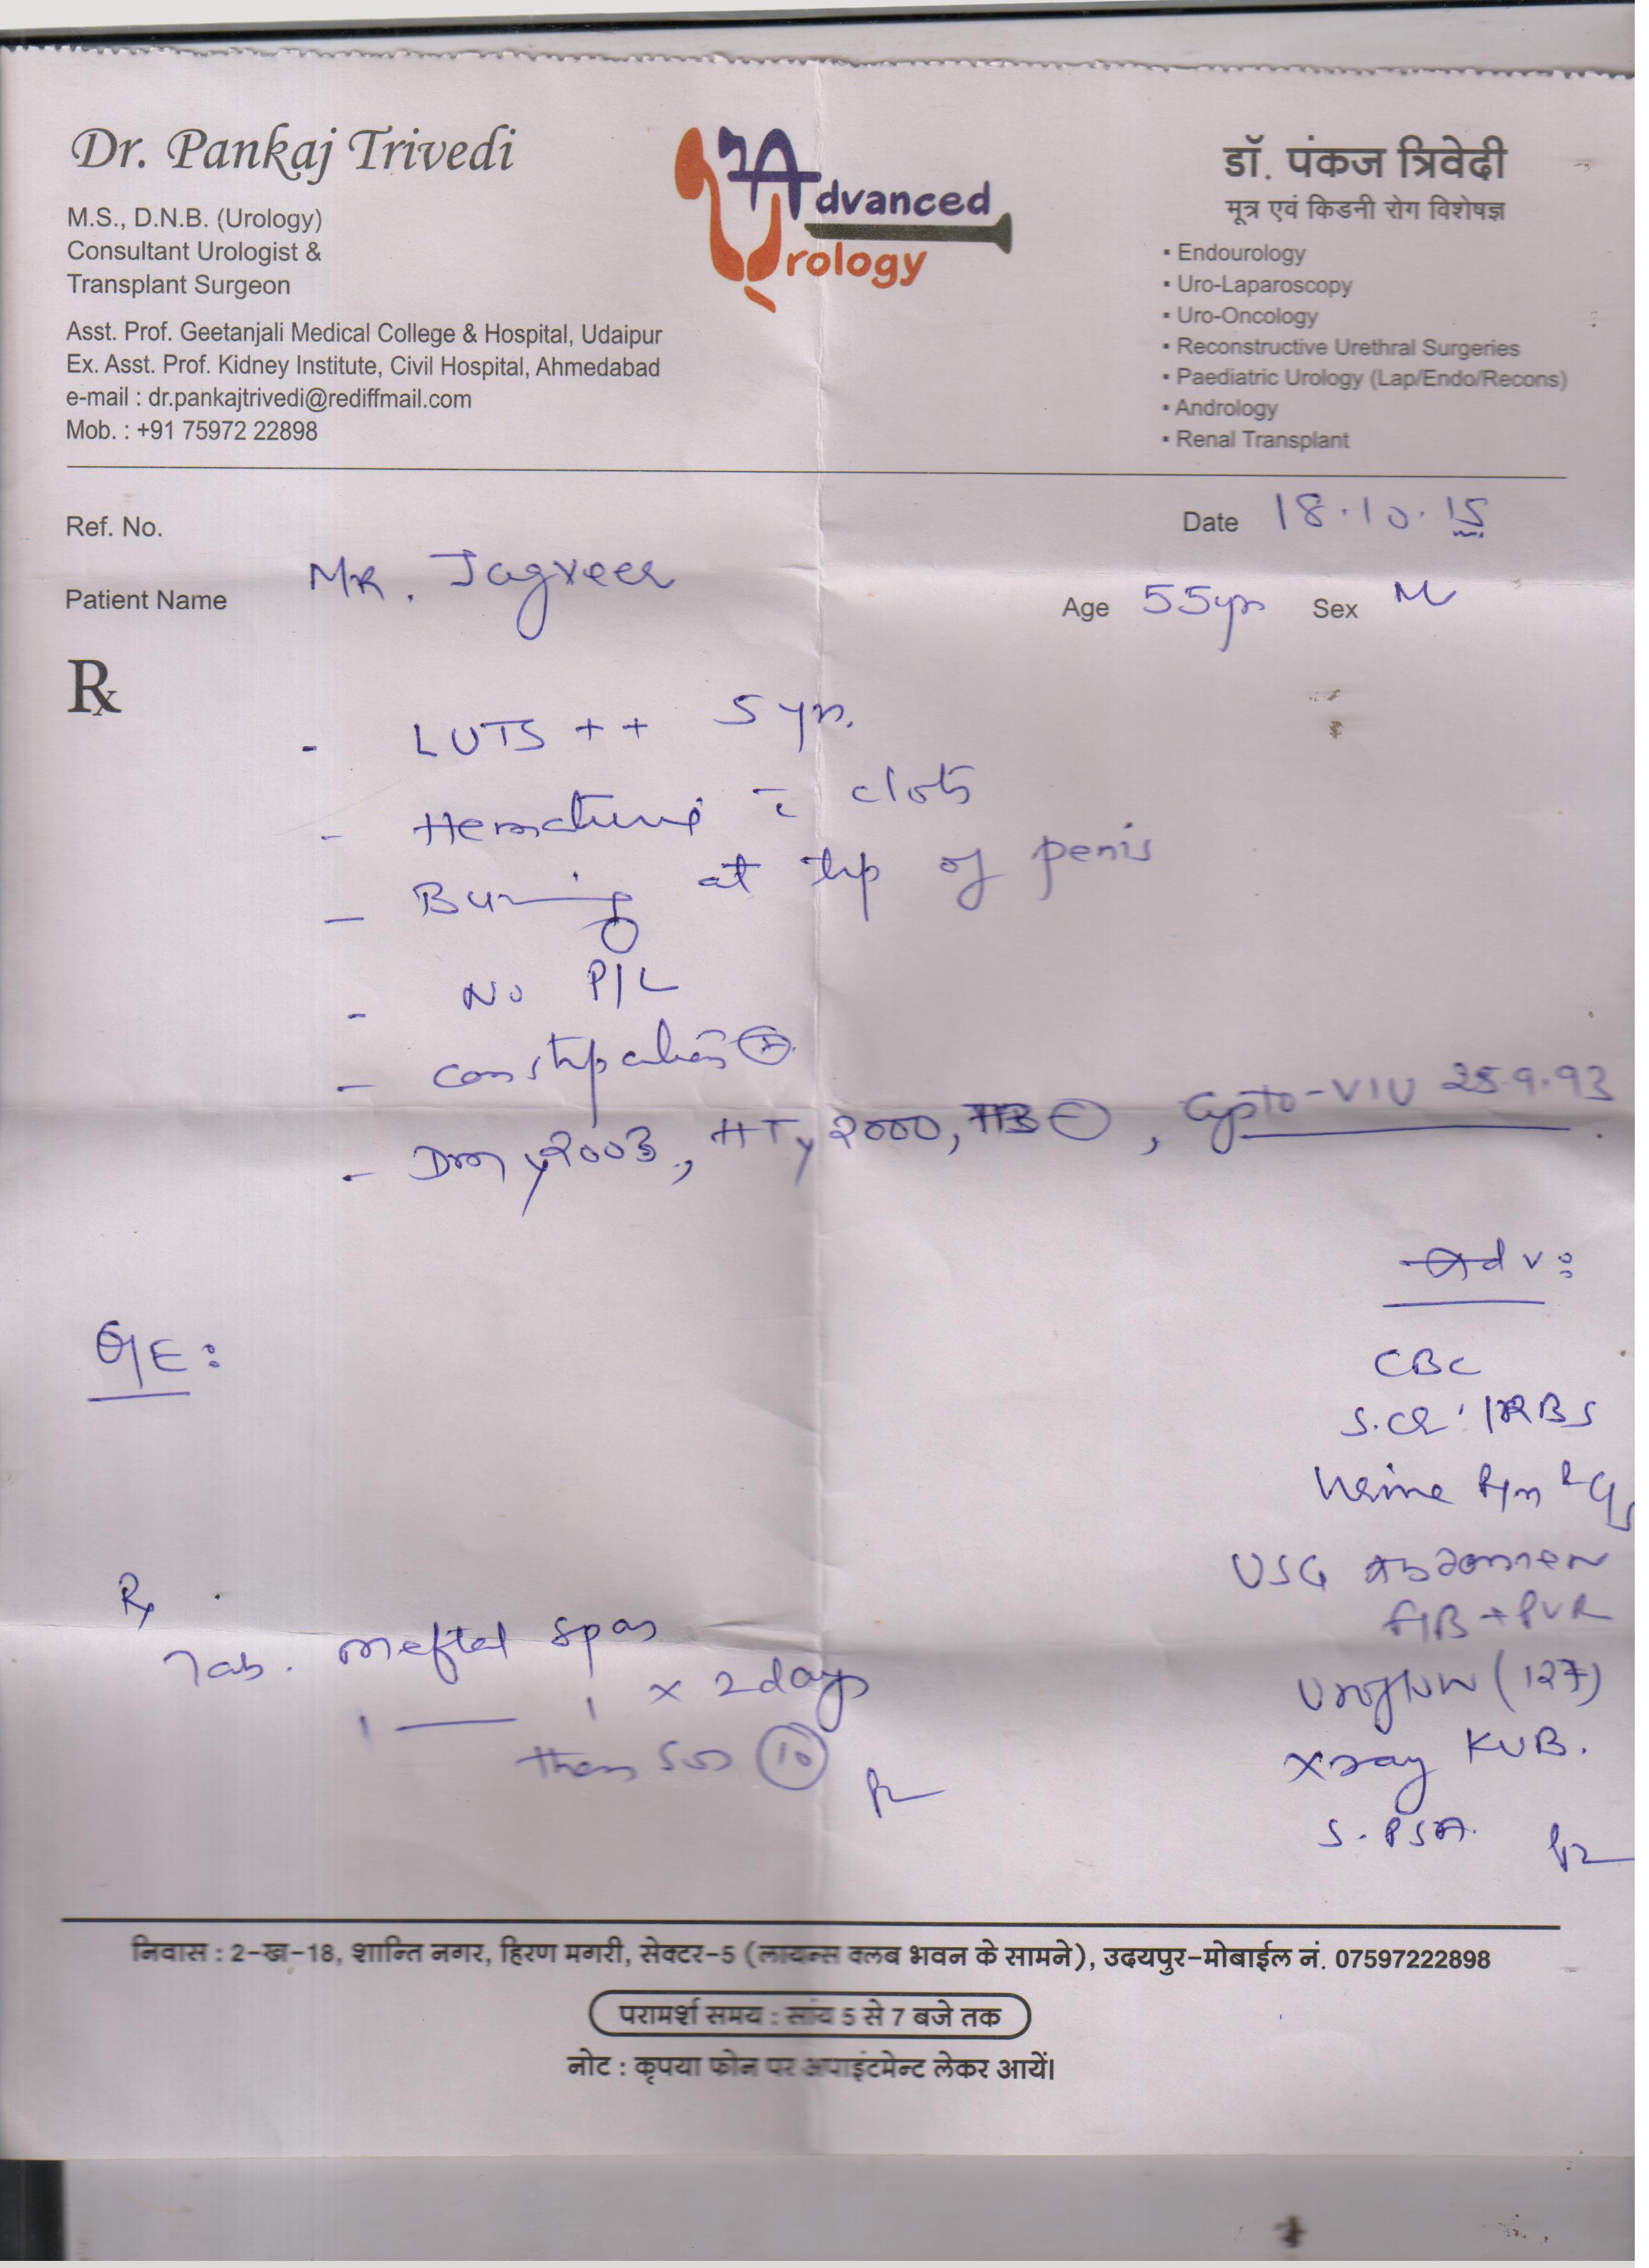 Dr. Pankaj Trivedi
M.S., D.N.B. (Urology)
Consultant Urologist &
Transplant Surgeon
Asst. Prof. Geetanjali Medical College & Hospital, Udaipur
Ex. Asst. Prof. Kidney Institute, Civil Hospital, Ahmedabad
e-mail : dr.pankajtrivedi@rediffmail.com
Mob. : +91 75972 22898
Advanced
Urology
डॉ. पंकज त्रिवेदी
मूत्र एवं किडनी रोग विशेषज्ञ
▪ Endourology
▪ Uro-Laparoscopy
▪ Uro-Oncology
▪ Reconstructive Urethral Surgeries
▪ Paediatric Urology (Lap/Endo/Recons)
▪ Andrology
▪ Renal Transplant
Ref. No.
Date 18.10.15
Patient Name MR. Jagveer
Age 55yrs Sex M
Rx
- LUTS ++ 5 yrs.
- Hematuria c̄ clots
- Burning at tip of penis
- No P/L
- constipation ⊕
- DM y 2003, HT y 2000, TB ⊖, Cysto-VIU 25.9.93
Adv:
O/E:
CBC
S.CR. / RBS
Urine R/M & C/S
USG Abdomen
+ PVR
Uroflow (127)
Xray KUB.
S. PSA.
Rx
Tab. Meftal Spas
1 — 1 x 2 days
then SOS (10)
निवास : 2-ख-18, शान्ति नगर, हिरण मगरी, सेक्टर-5 (लायन्स क्लब भवन के सामने), उदयपुर-मोबाईल नं. 07597222898
परामर्श समय : सांय 5 से 7 बजे तक
नोट : कृपया फोन पर अपाइंटमेन्ट लेकर आयें।